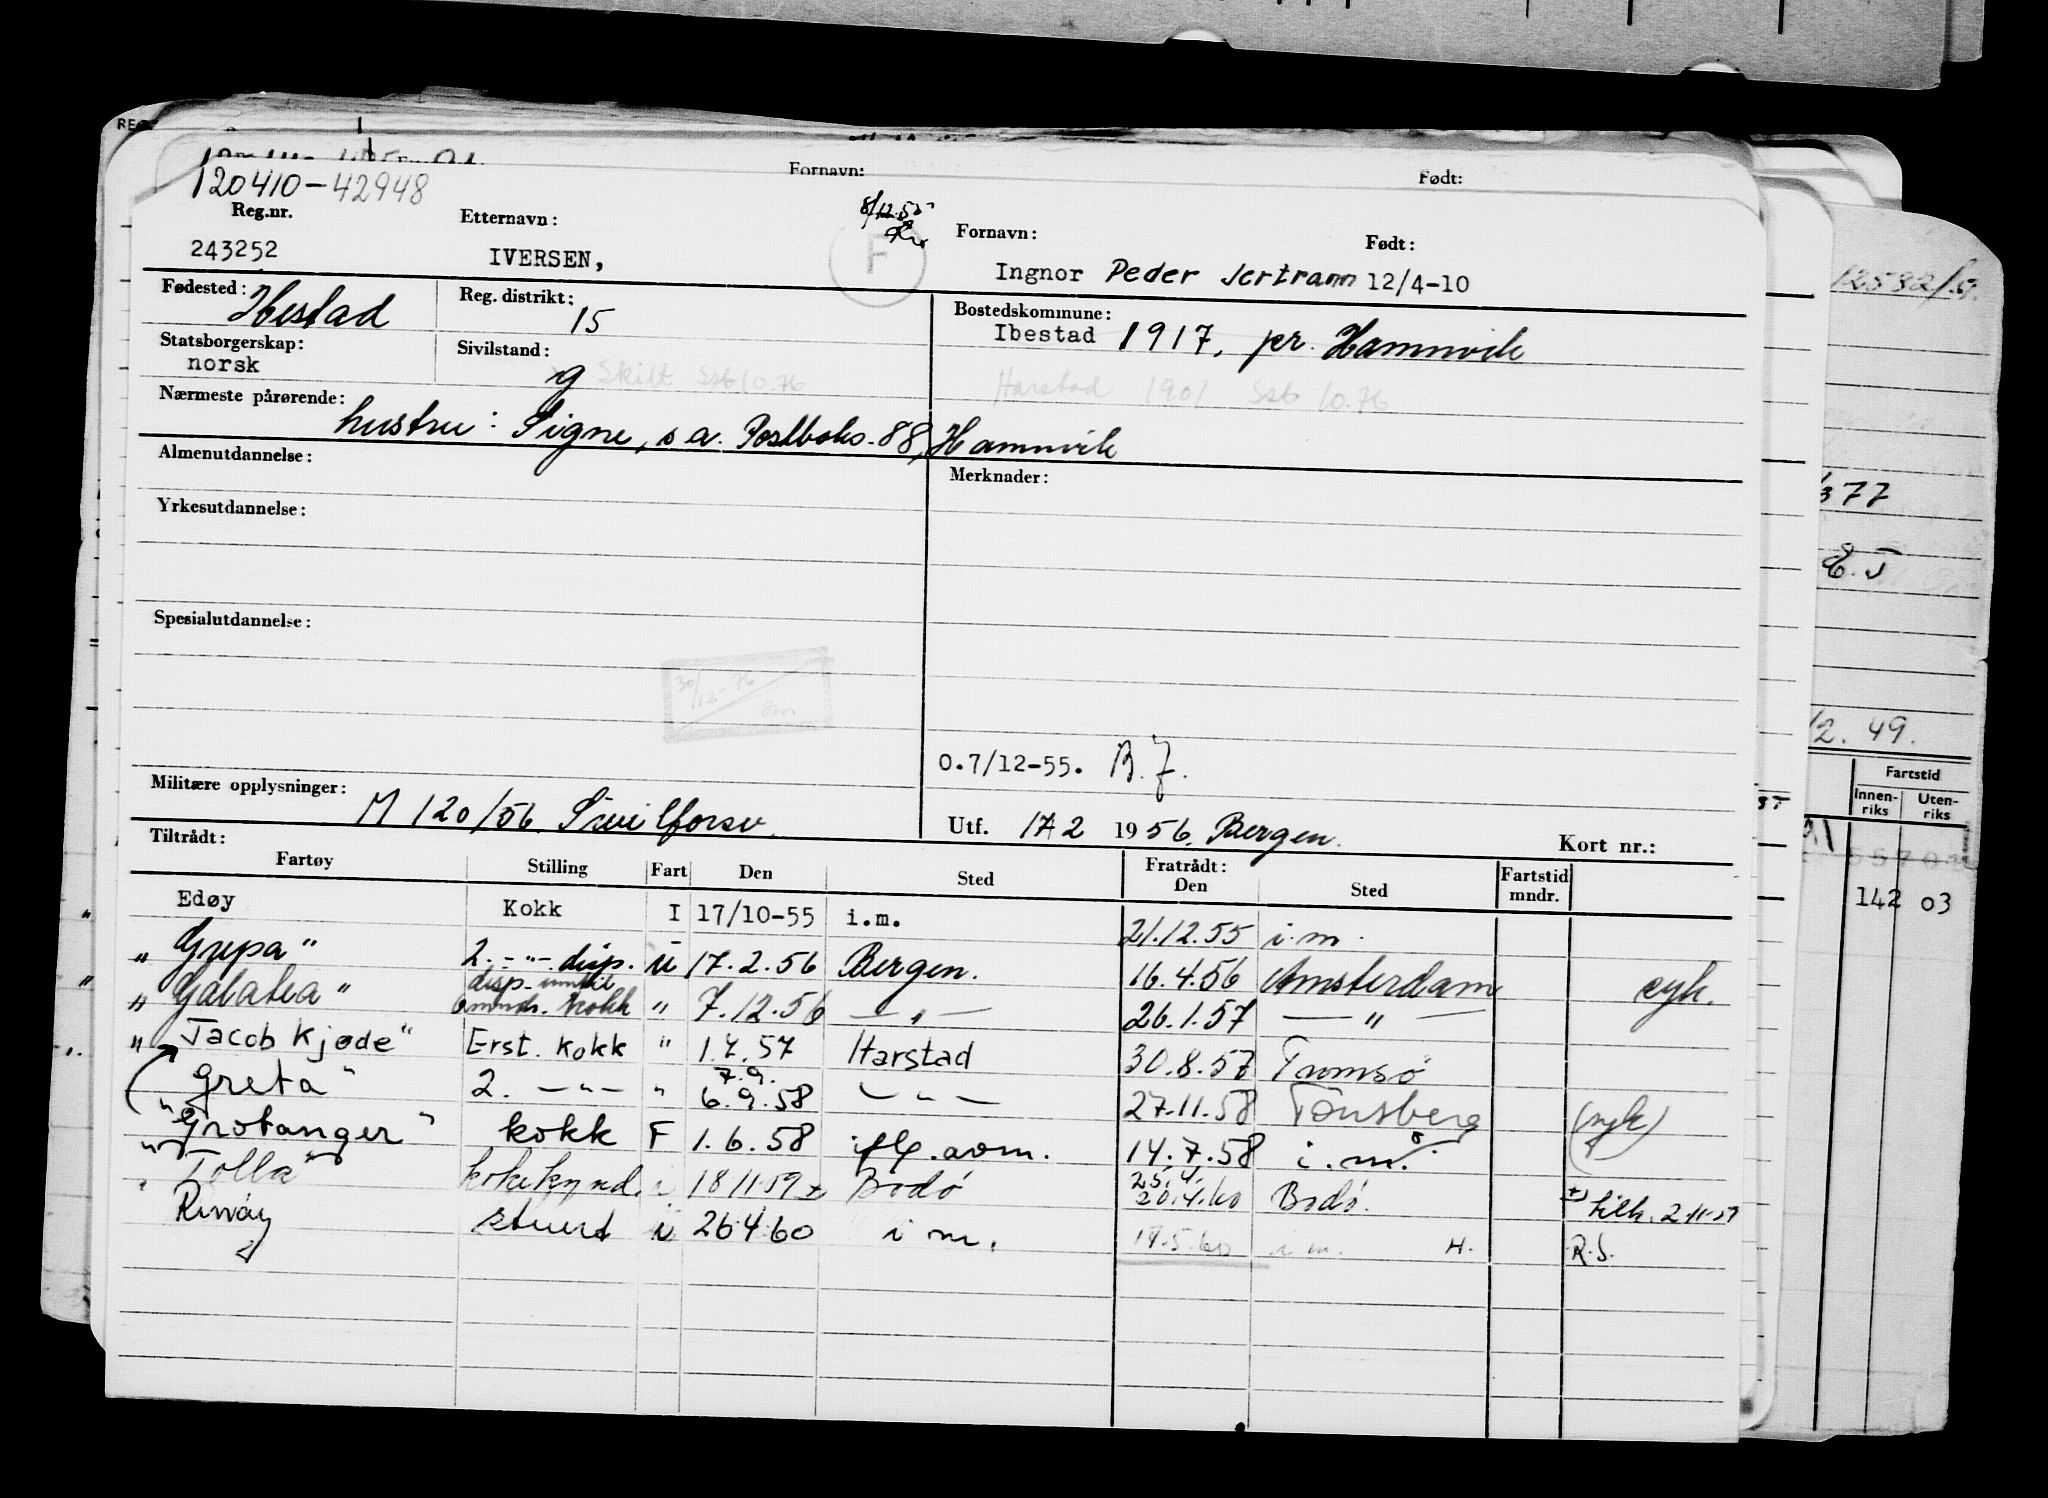 Fornavn: Født:
120410-42948
Reg.nr. Etternavn: 8/12.55 Fornavn: Født:
243252 IVERSEN, F Ingnor Peder Jertramm 12/4-10
Fødested: Ibestad Reg. distrikt: 15 Bostedskommune: Ibestad 1917, pr. Hamnvik
Statsborgerskap: norsk Sivilstand: g Skilt Ssb 10.76 Harstad 1901 Ssb 10.76
Nærmeste pårørende: hustru: Signe, s.a. Postboks 88, Hamnvik
Almenutdannelse: Merknader:
Yrkesutdannelse:
Spesialutdannelse:
30/12-76
O.7/12-55. B.J.
Militære opplysninger: M 120/56 Sivilforsv.
Utf. 17/2 1956, Bergen. Kort nr.:
Tiltrådt: Fratrådt:
Fartøy Stilling Fart Den Sted Den Sted Fartstid mndr.
Edøy Kokk I 17/10-55 i.m. 21.12.55 i.m.
"Grepa" 2. -"- disp. u 17.2.56 Bergen. 16.4.56 Amsterdam syk.
"Galatea" disp. inntil 6 mnds. kokk " 7.12.56 -"- 26.1.57 -"-
"Jacob Kjøde" Erst. kokk " 1.7.57 Harstad 30.8.57 Tromsø
"Greta" 2. -"- " 7.9. 6.9.58 -"- 27.11.58 Tønsberg (syk)
"Grotanger" kokk F 1.6.58 iflg. avm. 14.7.58 i.m.
"Tolla" kokekynd. i 18.11.59 + Bodø 25.4. 20.4.60 Bodø. +) tilh. 2-11-59
Rinøy stuert i 26.4.60 i m. 14.5.60 i m. H. R.S.
12532/
377
E.T
12.49.
Fartstid
Innenriks Utenriks
142 03